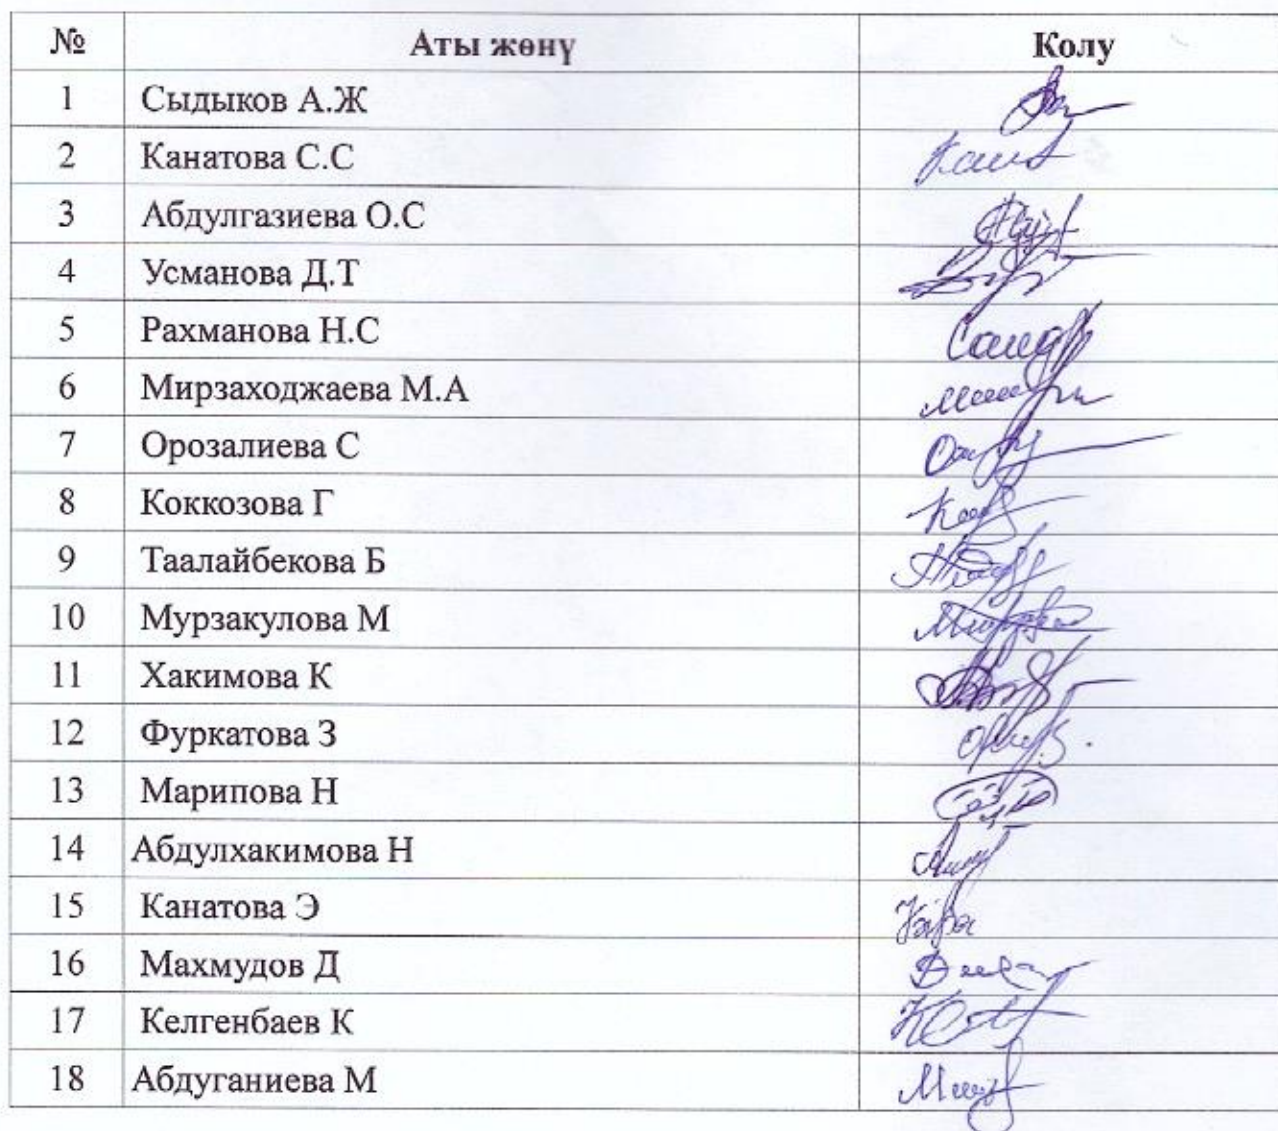 № Аты жөнү Колу
1 Сыдыков А.Ж
2 Канатова С.С
3 Абдулгазиева О.С
4 Усманова Д.Т
5 Рахманова Н.С
6 Мирзаходжаева М.А
7 Орозалиева С
8 Коккозова Г
9 Таалайбекова Б
10 Мурзакулова М
11 Хакимова К
12 Фуркатова З
13 Марипова Н
14 Абдулхакимова Н
15 Канатова Э
16 Махмудов Д
17 Келгенбаев К
18 Абдуганиева М